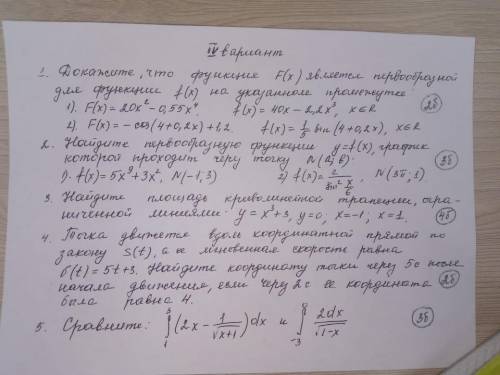 IV вариант
1. Докажите, что функция F(x) является первообразной
для функции f(x) на указанном промежутке
1). F(x) = 20x² - 0,55x⁴, f(x) = 40x - 2,2x³, x∈R 2б
2). F(x) = - cos(4+0,2x)+1,2 f(x) = 1/5 sin(4+0,2x), x∈R
2. Найдите первообразную функции y=f(x), график
которой проходит через точку N(a; b). 3б
1) f(x) = 5x⁹ + 3x², N(-1; 3) 2) f(x) = 2/sin² x/6, N(3π; 1)
3. Найдите площадь криволинейной трапеции, огра-
ниченной линиями y = x³+3, y=0, x=-1; x=1. 4б
4. Точка движется вдоль координатной прямой по
закону s(t), а ее мгновенная скорость равна
v(t) = 5t+3. Найдите координату точки через 5с после
начала движения, если через 2с ее координата
была равна 4. 2б
5. Сравните: ∫₁³ (2x - 1/√(x+1)) dx и ∫₋₃⁰ 2dx/√(1-x) 3б